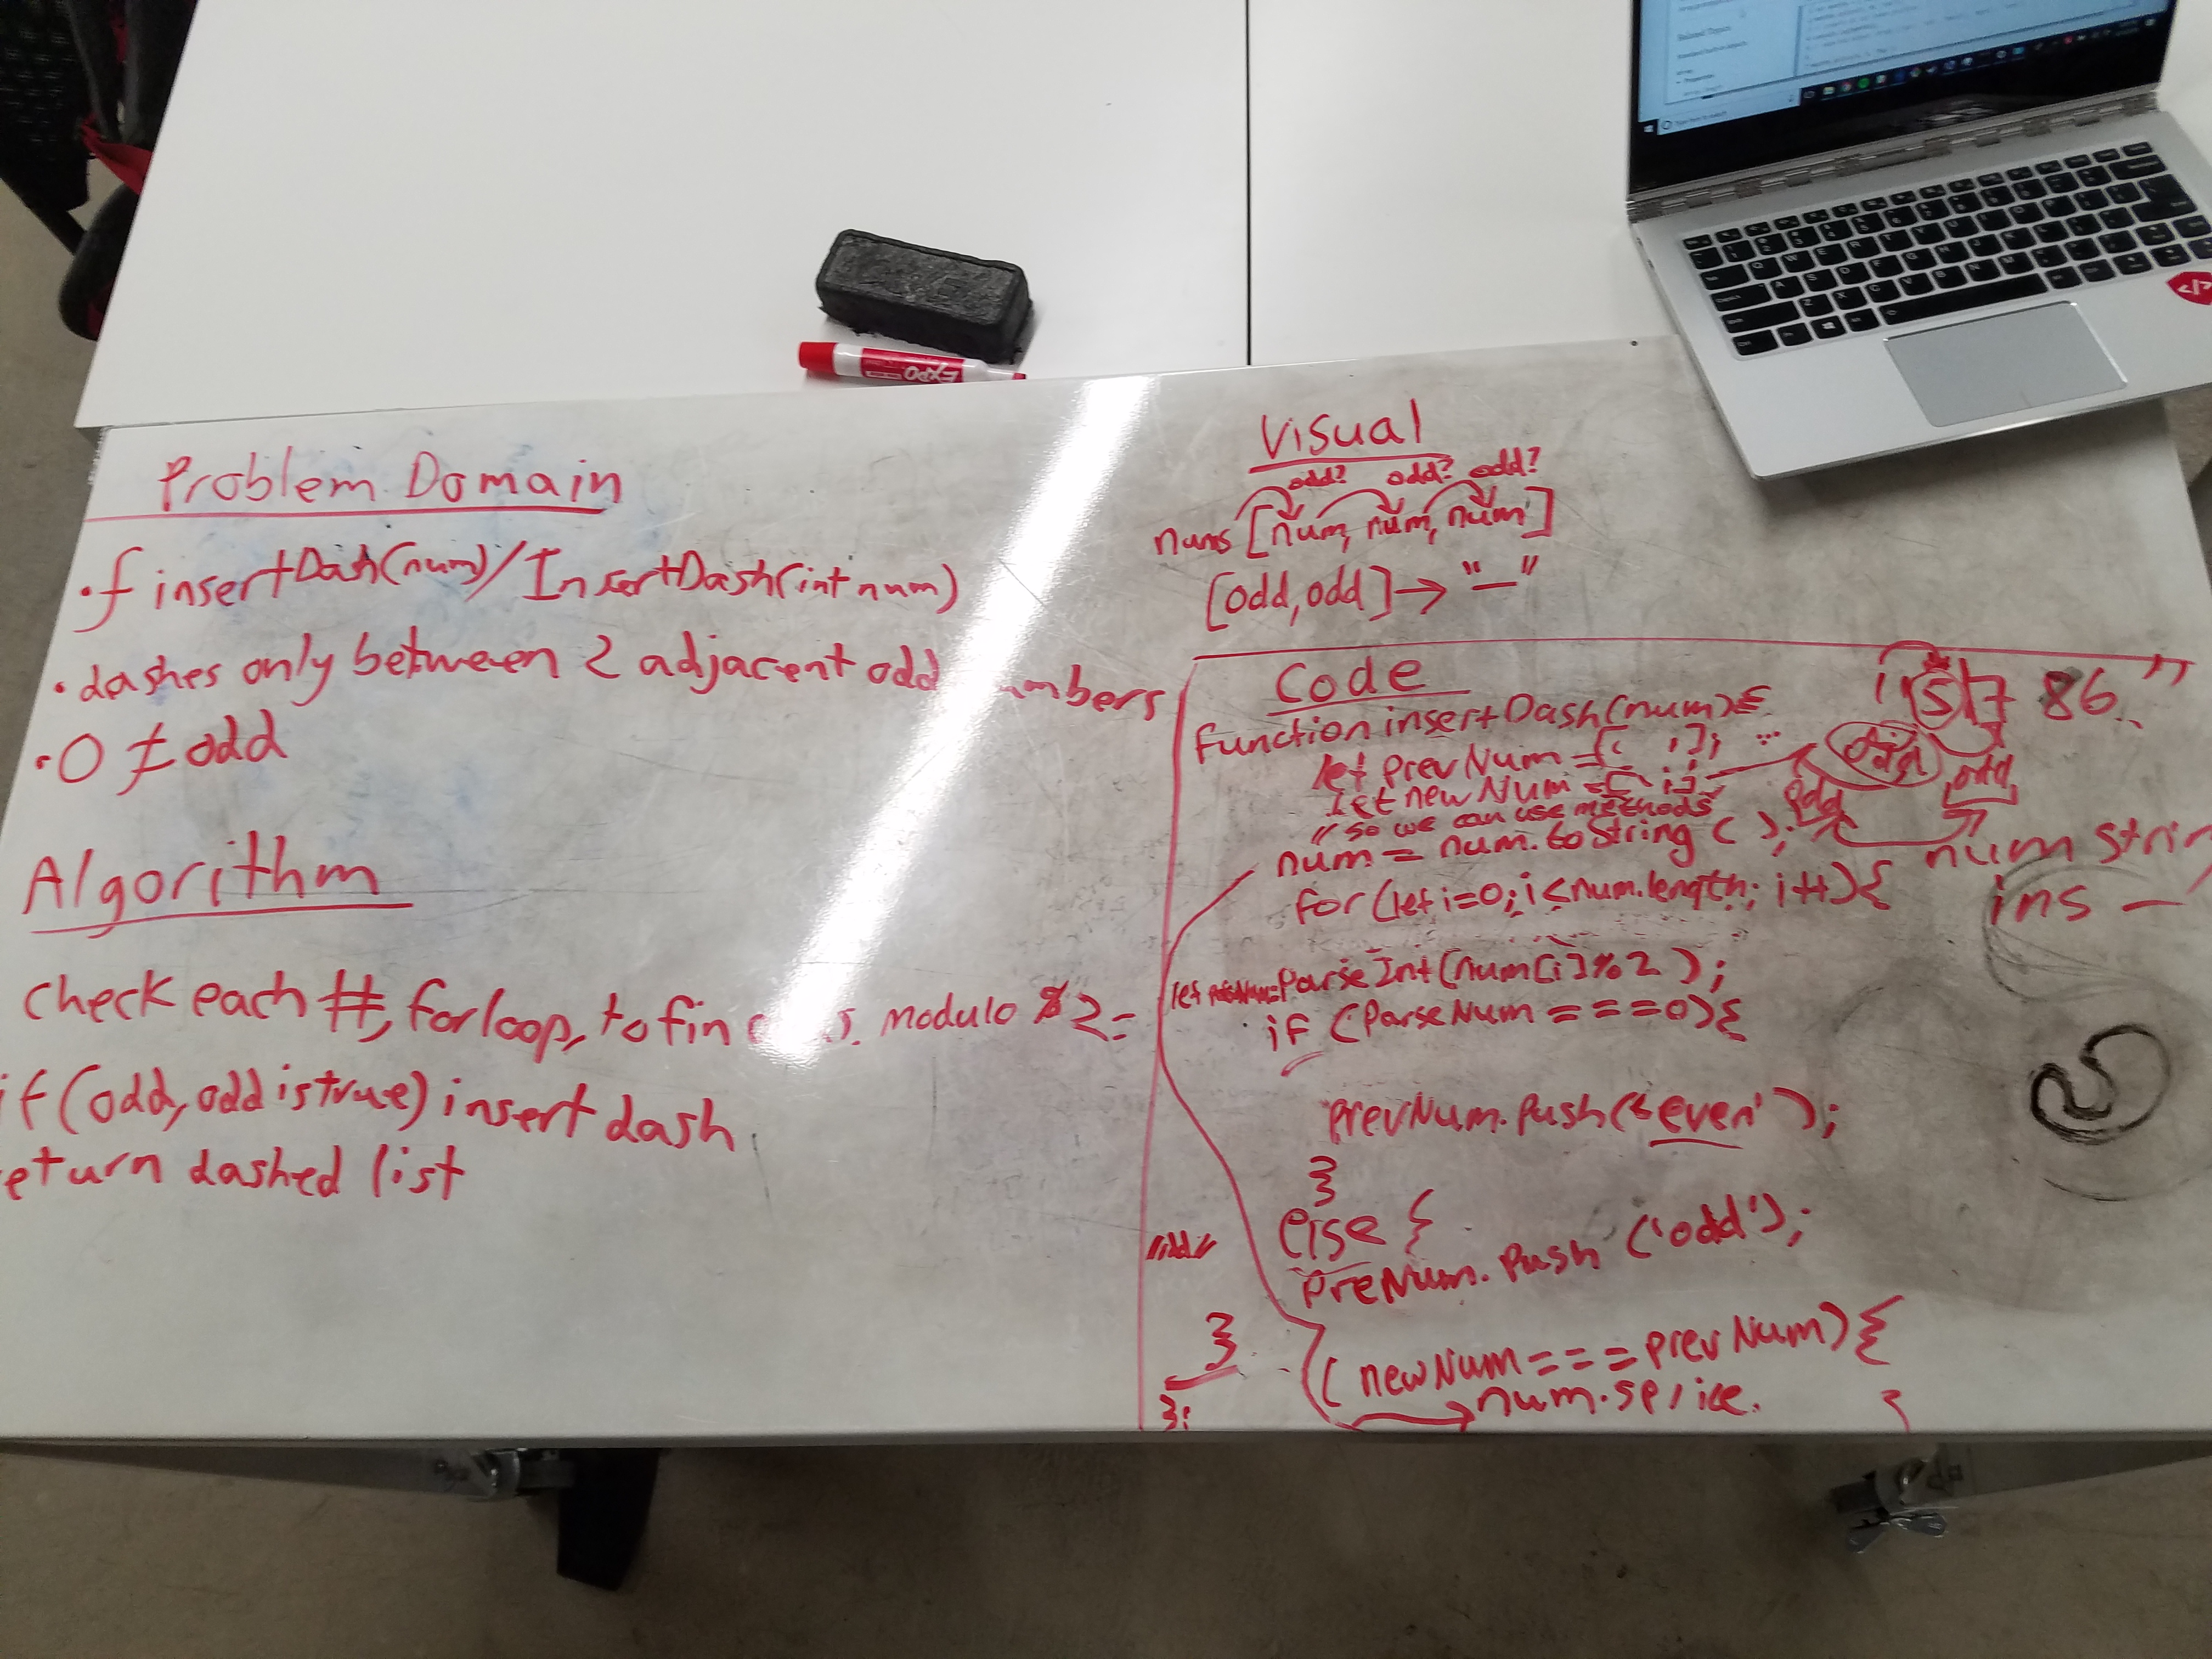 Problem Domain
• f insertDash(num)/InsertDash(int num)
• dashes only between 2 adjacent odd mbers
• 0 ≠ odd
Algorithm
check each #, for loop, to fin modulo % 2 =
if (odd, odd is true) insert dash
eturn dashed list
Visual
odd? odd? odd?
nums [num, num, num]
[odd, odd] → "—"
Code
function insertDash(num) {
let prevNum = [ ];
let newNum = [ ];
// so we can use methods
num = num.toString ( );
for (let i=0; i<num.length; i++){
let parseInt(num[i]%2);
if (parseNum === 0){
prevNum.push('even');
}
else {
preNum.push ('odd');
}
(newNum === prevNum) {
num.splice.
}
};
86 "
odd
odd
num strin
ins —
EXPO